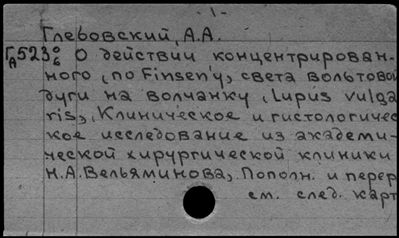 - 1 -
Глебовский, А.А.
Га523 6/6 О действии концентрирован-
ного (по Finsen'у) света вольтовой
дуги на волчанку (Lupus vulga
ris). Клиническое и гистологичес
кое исследование из академи-
ческой хирургической клиники
Н.А. Вельяминова, Пополн. и перер
см. след. карт